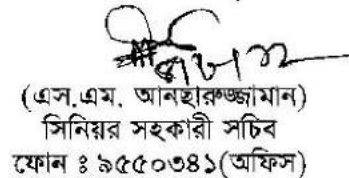 (এস.এম. আনহারুজ্জামান)
সিনিয়র সহকারী সচিব
ফোন ঃ ৯৫৫০৩৪১(অফিস)